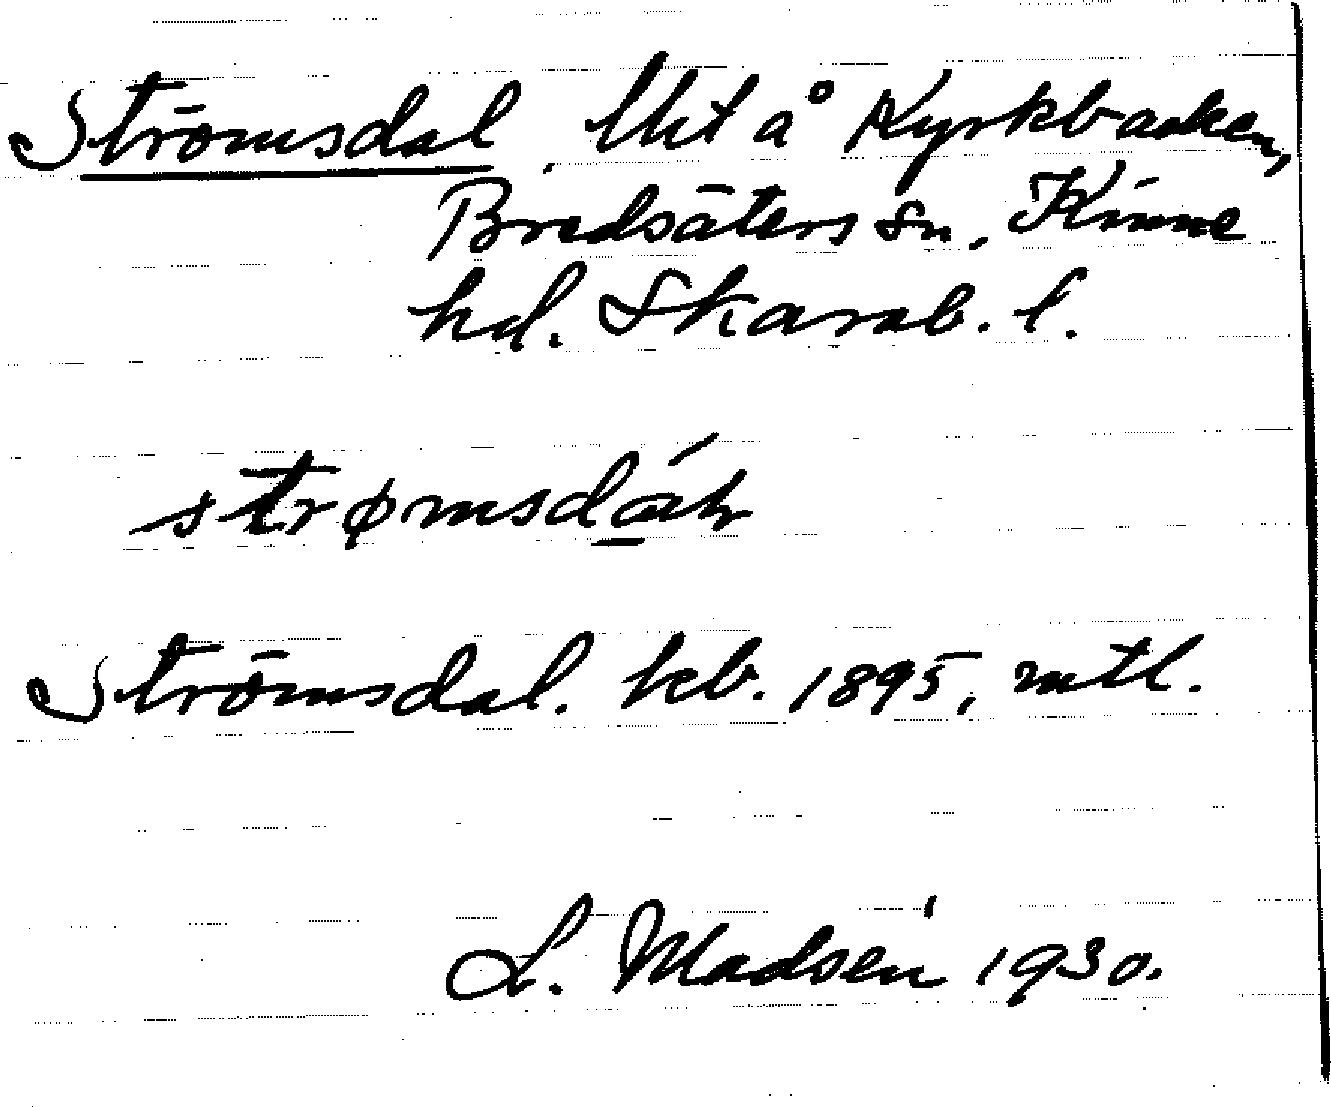 Strömsdal. Utt å Kyrkbacken,
Bredsäters sn, Kinne
hd. Skarab. l.
strømsdáh
Strömsdal. kb. 1895, mtl.
L. Madsén 1930.